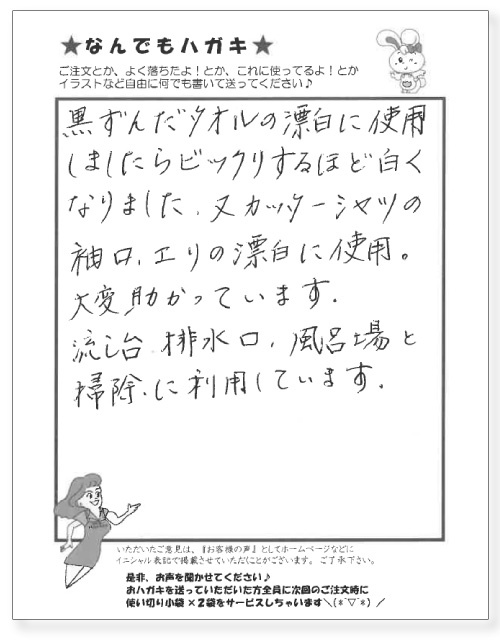 ★なんでもハガキ★
ご注文とか、よく落ちたよ！とか、これに使ってるよ！とか
イラストなど自由に何でも書いて送ってください♪
黒ずんだタオルの漂白に使用
しましたらビックリするほど白く
なりました、又カッターシャツの
袖口、エリの漂白に使用。
大変助かっています.
流し台 排水口、風呂場と
掃除、に利用しています.
いただいたご意見は、『お客様の声』としてホームページなどに
イニシャル表記で掲載させていただくことがございます。ご了承下さい。
是非、お声を聞かせてください♪
おハガキを送っていただいた方全員に次回のご注文時に
使い切り小袋×2袋をサービスしちゃいます＼(*ˉ▽ˉ*)／